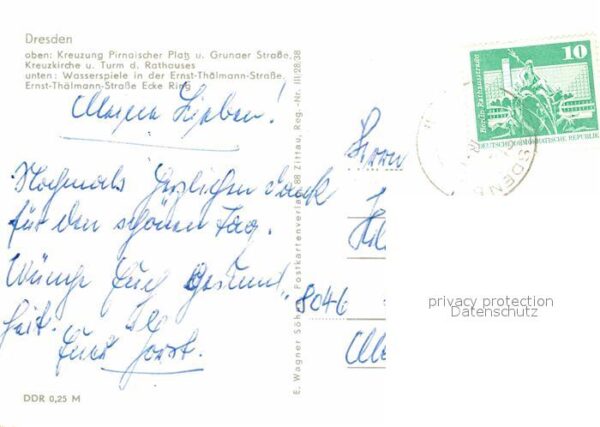 Dresden
oben: Kreuzung Pirnaischer Platz u. Grunaer Straße,
Kreuzkirche u. Turm d. Rathauses
unten: Wasserspiele in der Ernst-Thälmann-Straße,
Ernst-Thälmann-Straße Ecke Ring
Meine Lieben!
Nochmals herzlichen Dank
für den schönen Tag.
Wünsche Euch Gesund-
heit.
Euer Horst.
DDR 0,25 M
E. Wagner Söhne, Postkartenverlag, 88 Zittau, Reg.-Nr. III/28/38
10
Berlin, Rathausstraße
DEUTSCHE DEMOKRATISCHE REPUBLIK
Herrn
8046
privacy protection
Datenschutz